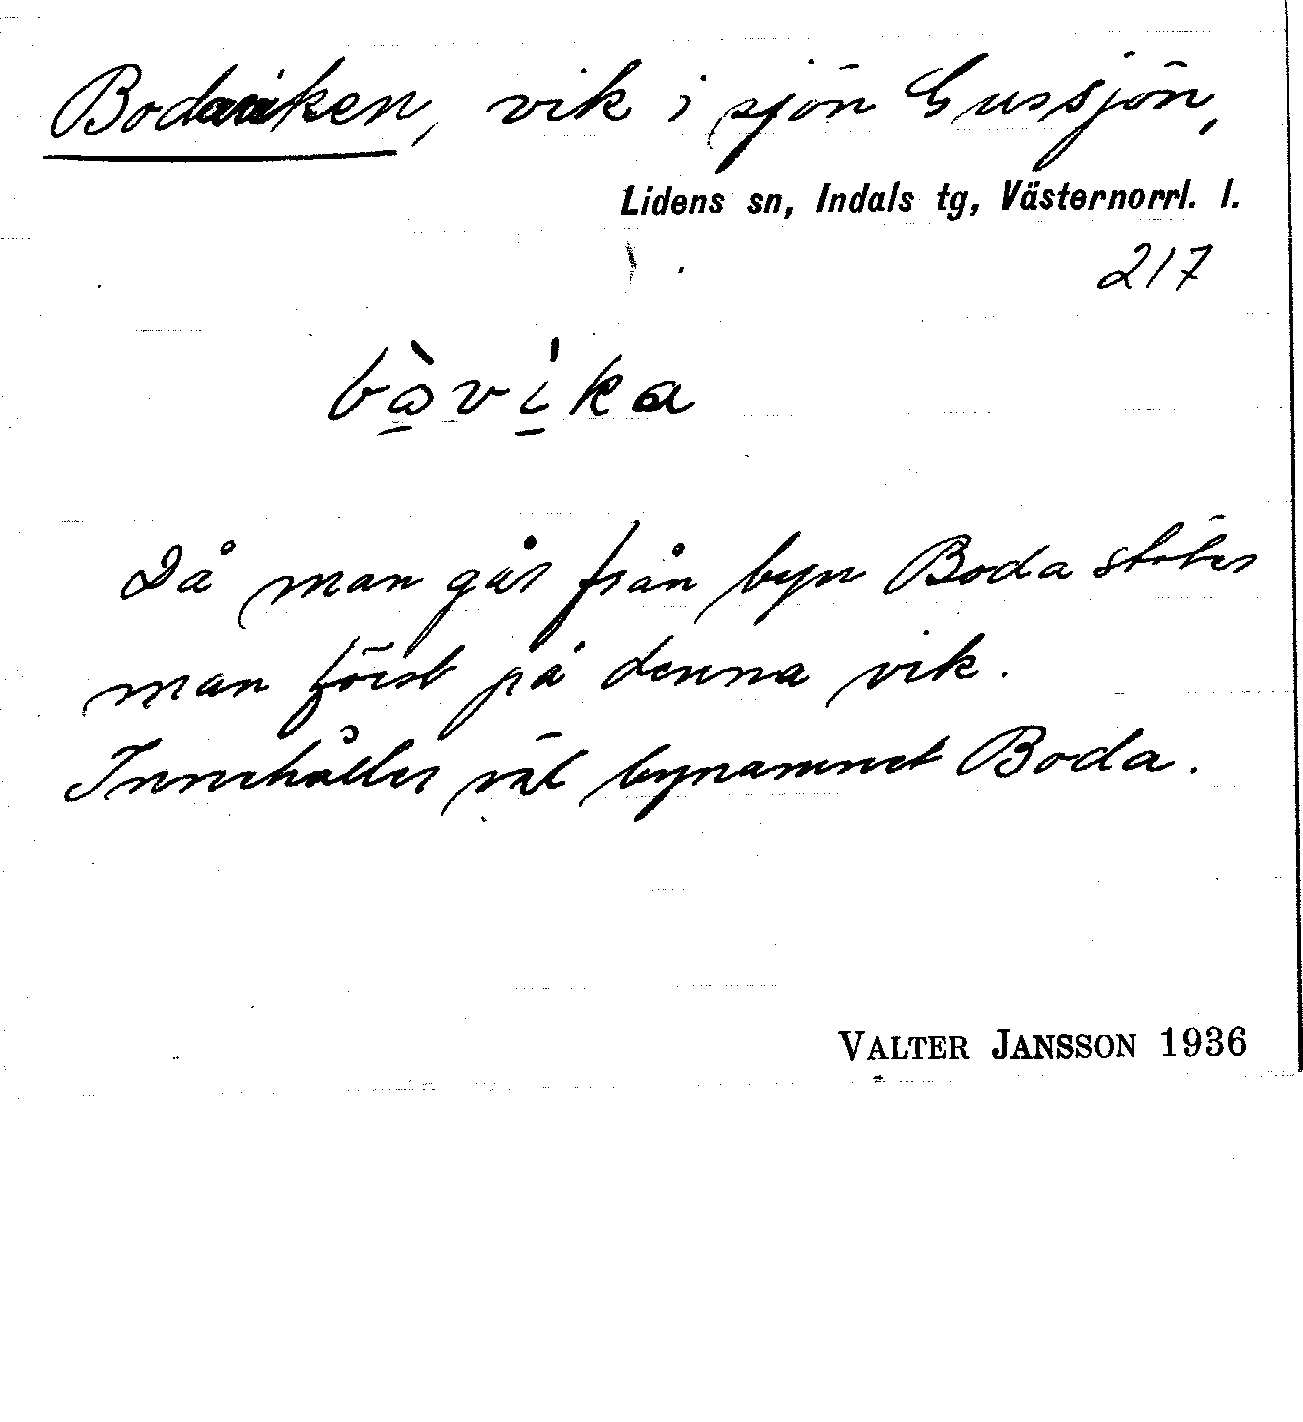 Bodaviken, vik i sjön Gussjön,
Lidens sn, Indals tg, Västernorrl. l.
217
bàvi̍ka
Då man går från byn Boda stöter
man först på denna vik.
Innehåller väl bynamnet Boda.
VALTER JANSSON 1936